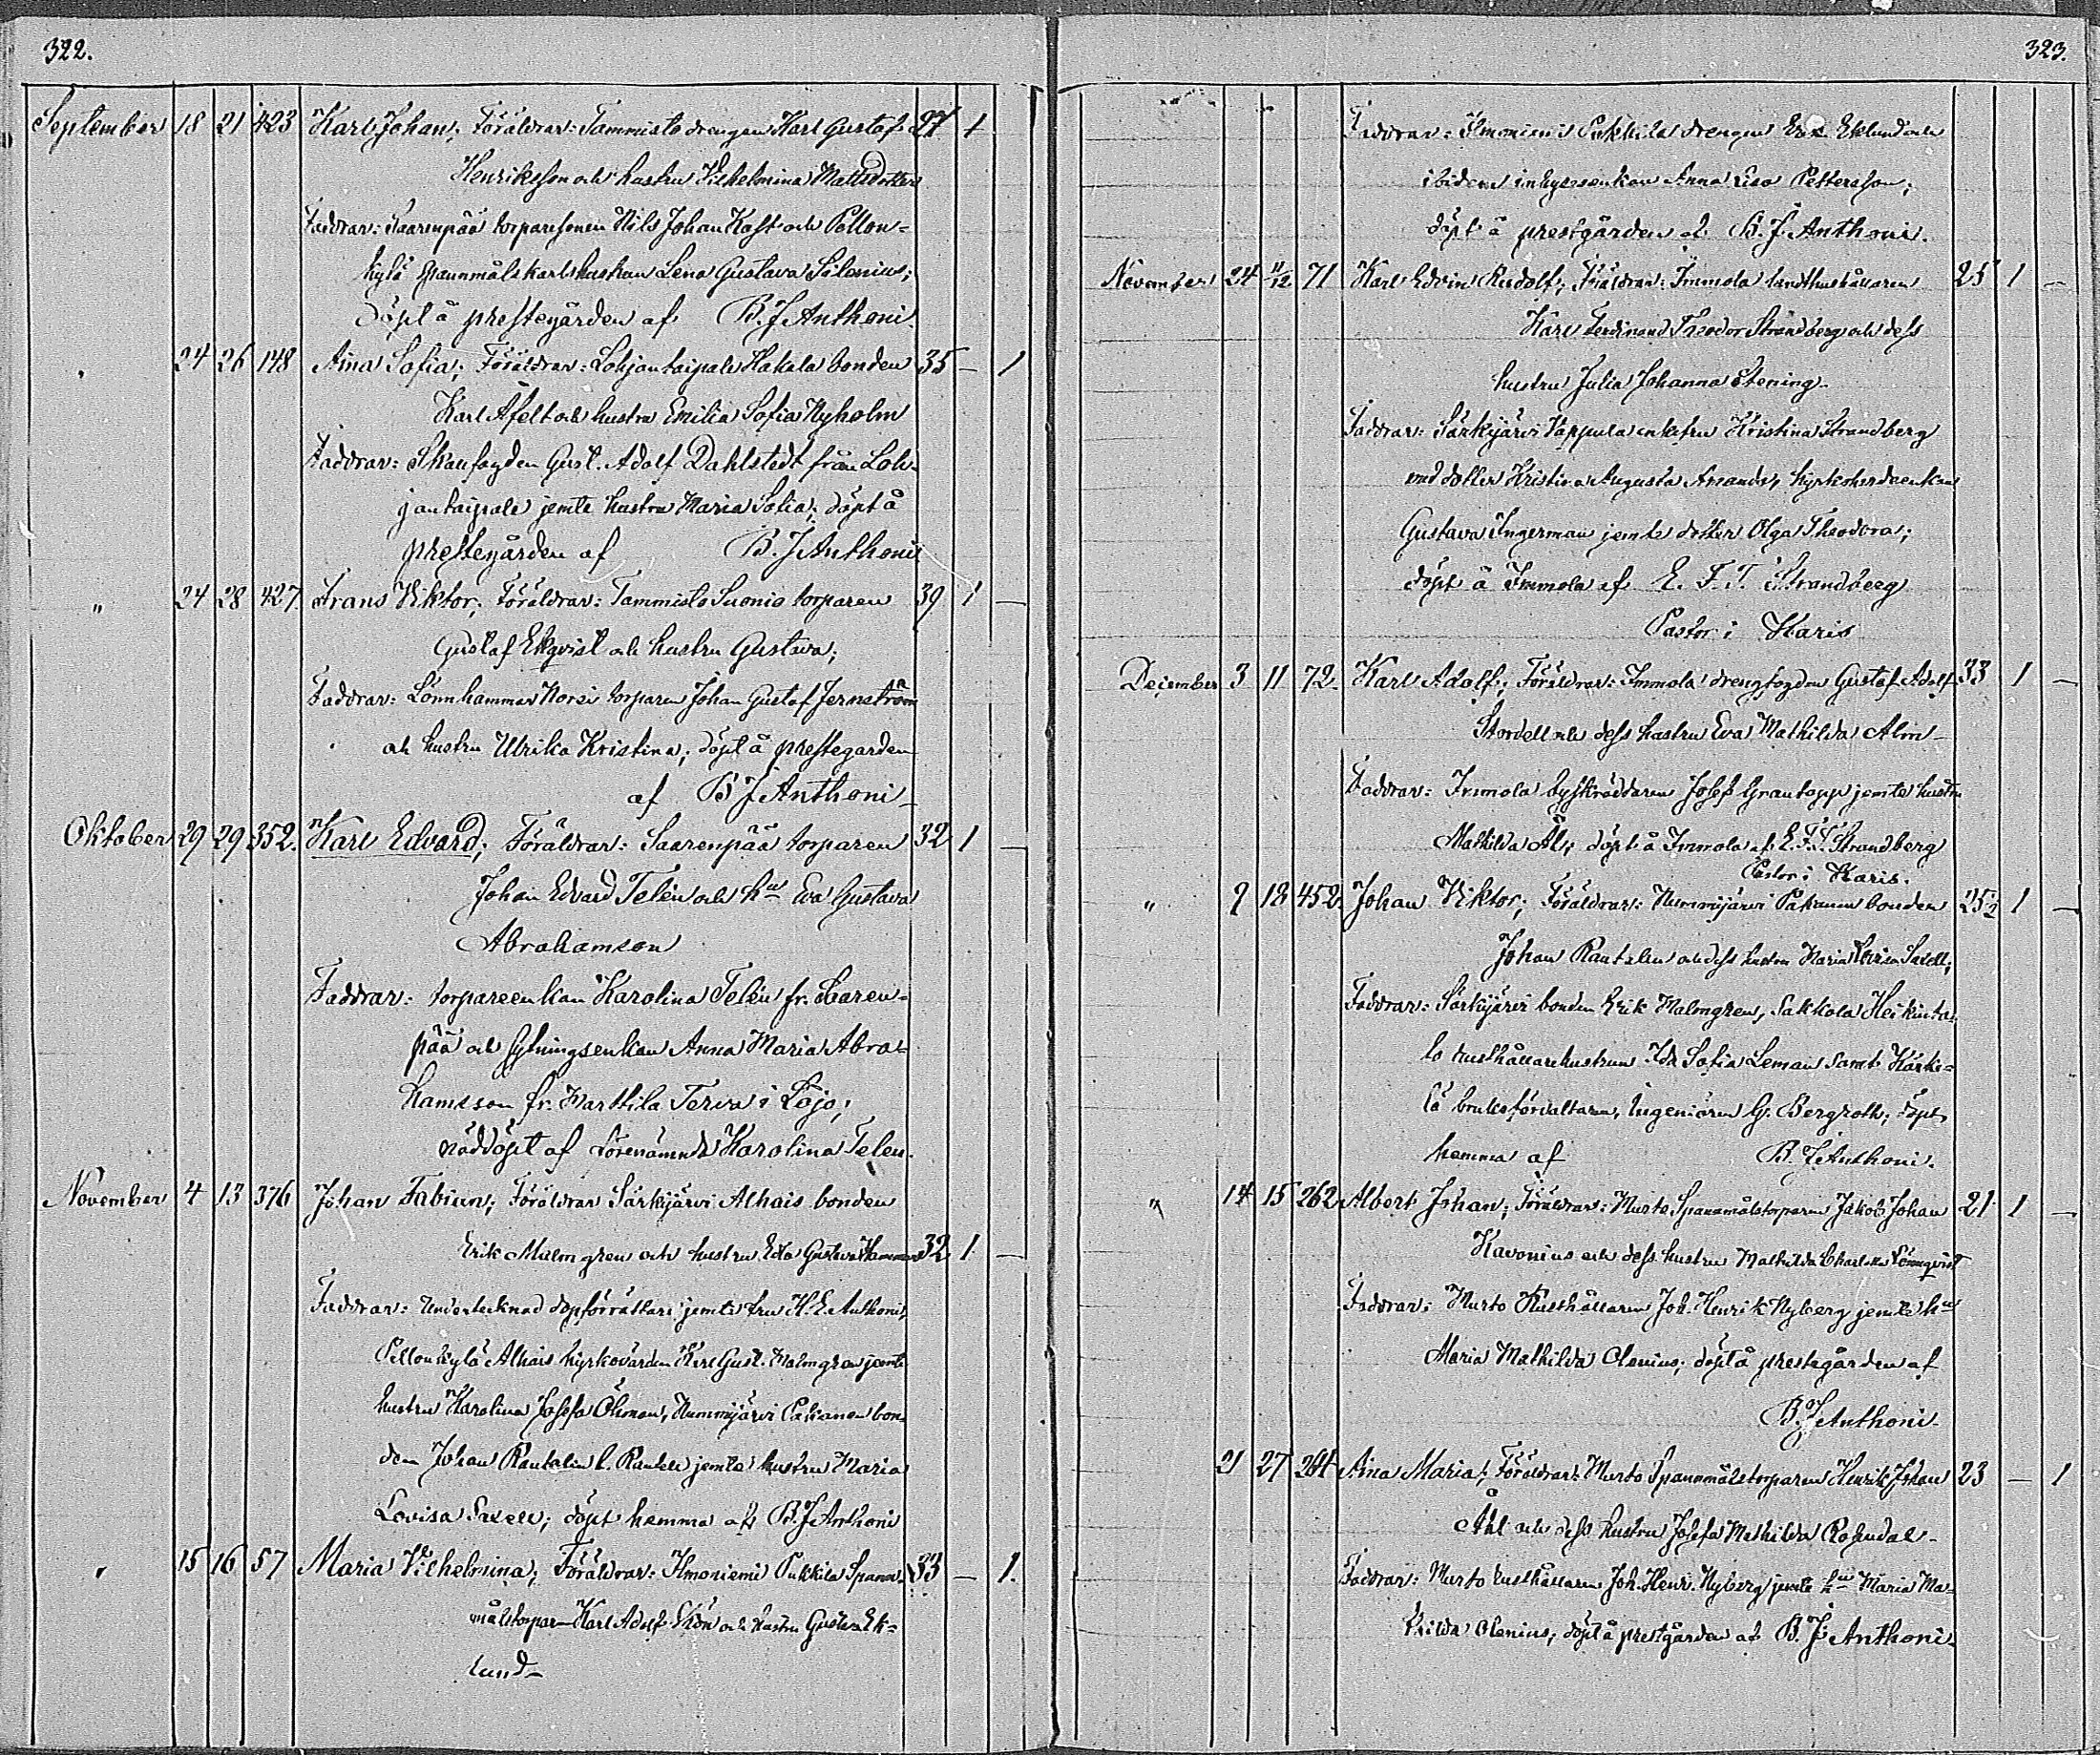 322.
September 18 21 423 Karl Johan; Föräldrar: Tammisto drengen Karl Gustaf 27 1
Henriksson och hustru Vilhelmina Mattsdotter
Faddrar: Saarenpää torparesonen Nils Johan Kast och Pellon-
kylä spannmålskarlshustrun Lena Gustava Silenius;
döpt å prestegården af B. J Anthoni.
24 26 148 Aina Sofia; Föräldrar: Lohjantaipale Hakala bonden 35 — 1
Karl Afelt och hustru Emilia Sofia Nyholm
Faddrar: Skaufogden Gust. Adolf Dahlstedt från Loh-
jantaipale jemte hustru Maria Sofia; döpt å
prestegården af B. J Anthoni
" 24 28 427 Frans Viktor; Föräldrar: Tammisto Suonio torparen 39 1 —
Gustaf Ekqvist och hustru Gustava;
Faddrar: Lönnhammar Norsi torparen Johan Gustaf Jernström
och hustru Ulrika Kristina; döpt å prestegarden
af B J Anthoni
Oktober 29 29 352. Karl Edvard; Föräldrar: Saarenpää torparen 32 1 —
Johan Edvard Telén och hu Eva Gustava
Abrahamson
Faddrar: torpareenkan Karolina Telén fr. Saaren-
pää och sytningsenkan Anna Maria Abra-
hamsson fr. Marttila Terva i Lojo;
nöddöpt af förenämnde Karolina Telen.
November 4 13 376 Johan Fabian; Föräldrar Särkijärvi Alhais bonden
Erik Malmgren och hustru Eda Gustava 32 1 —
Faddrar: Undertecknad dopförrättare jemte fru H. E. Anthoni,
Pellonkylä Alhais kyrkovärden Karl Gust. Malmgren jemte
hustru Karolina Josefa Öhman, Nummijärvi Pakanen bon-
den Johan Rautalin l. Rautell jemte hustru Maria
Lovisa Saxell; döpt hemma af B. J Anthoni
" 15 16 57 Maria Vilhelmina; Föräldrar: Ilmoniemi Pukkila Spann- 33 — 1.
målstorpar Karl Adolf och hustru Gustava Ek-
lund
323.
Faddrar: Ilmoniemi Pukkila drengen Erik Eklund och
ibidem inhysesenkan Anna Lisa Pettersson;
döpt å prestgården af B. J. Anthoni.
November 24 11/12 71 Karl Edvin Rudolf; Föräldrar: Immola landthushållaren 25 1 —
Karl Ferdinand Theodor Strandberg och dess
hustru Julia Johanna Stening
Faddrar: Särkijärvi Vappula enkefru Kristina Strandberg
med dotter Kristina Augusta Amanda, kyrkoherdeenkan
Gustava Ingerman jemte dotter Olga Theodora;
döpt å Immola af E. F. T. Strandberg
Pastor i Karis
December 3 11 72. Karl Adolf; Föräldrar: Immola drengfogden Gustaf Adolf 33 1 —
Stordell och dess hustru Eva Mathilda Alm
Faddrar: Immola byskräddaren Josef Grantopp jemte hustru
Mathilda Ål; döpt å Immola af E. F. T. Strandberg
Pastor i Karis.
" 9 18 452 Johan Viktor; Föräldrar: Nummijärvi Pakanen bonden 25 1/2 1 —
Johan Rautalin och dess hustru Maria Lovisa Saxell;
Faddrar: Särkijärvi bonden Erik Malmgren, Sakkola Heikinta-
lo rusthållarehustrun Ida Sofia Leman samt Kärke-
lä bruksförvaltaren, Ingeniören G. Bergroth; döpt
hemma af B. J Anthoni.
" 14 15 262 Albert Johan; Föräldrar: Murto Spannmålstorparen Jakob Johan 21 1 —
Kavonius och dess hustru Mathilda Charlotta Lönnqvist
Faddrar: Murto Rusthållaren Joh. Henrik Nyberg jemte hu
Maria Mathilda Alenius; döpt å prestegården af
B. J Anthoni
21 27 264 Aina Maria; Föräldrar: Murto Spannmålstorparen Henrik Johan 23 — 1
Åhl och dess hustru Josefa Mathilda Rosendal
Faddrar: Murto Rusthållaren Joh. Henr. Nyberg jemte hu Maria Ma-
thilda Alenius; döpt å prestgården af B. J. Anthoni